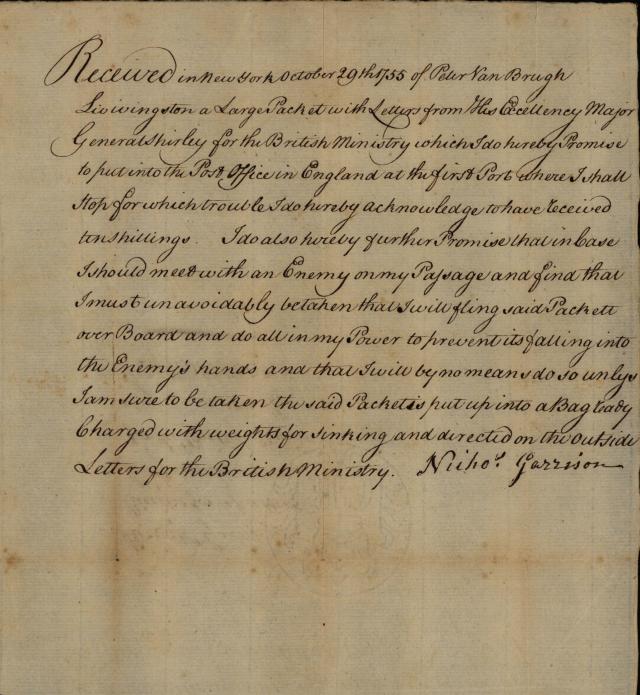 Received in New York October 29th 1755 of Peter Van Brugh
Livivingston a Large Packet with Letters from His Excellency Major
General Shirley for the British Ministry which I do hereby Promise
to put into the Post Office in England at the first Port where I shall
Stop for which trouble I do hereby acknowledge to have received
ten shillings. I do also hereby further Promise that in Case
I should meet with an Enemy on my Passage and find that
I must unavoidably be taken that I will fling said Packett
over Board and do all in my Power to prevent its falling into
the Enemy's hands and that I will by no means do so unlys
I am sure to be taken the said Packet is put up into a Bag ready
Charged with weights for sinking and directed on the outside
Letters for the British Ministry. Nichos. Garrison